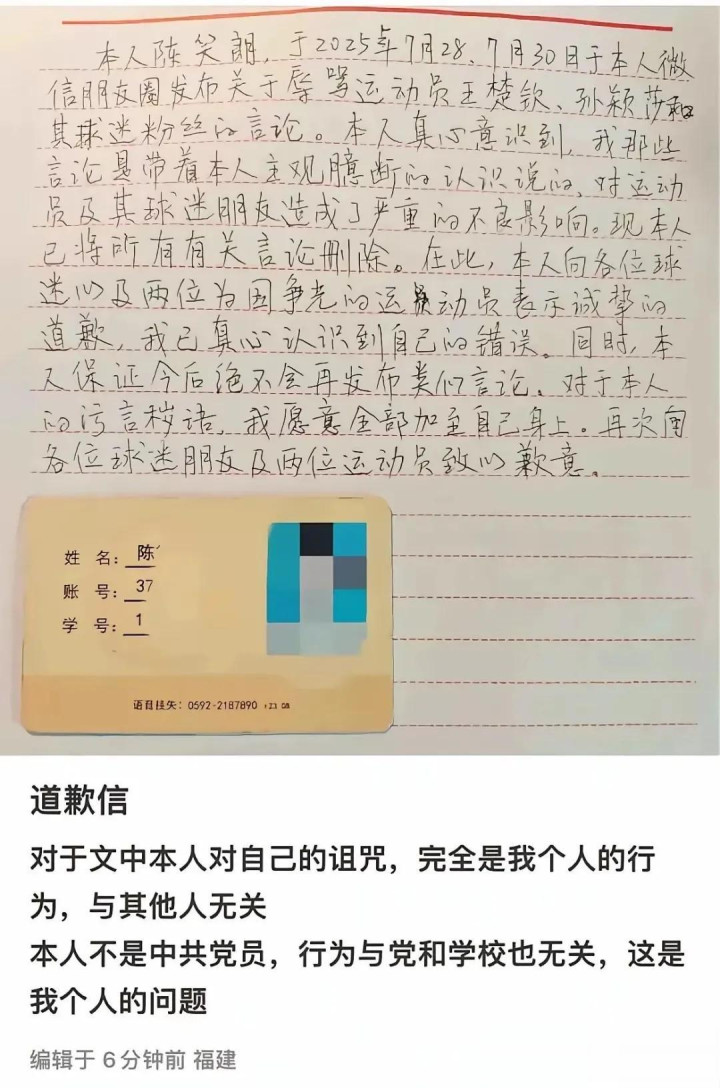 本人陈笑朗，于2025年7月28、7月30日于本人微
信朋友圈发布关于辱骂运动员王楚钦、孙颖莎和
其球迷粉丝的言论。本人真心意识到，我那些
言论是带着本人主观臆断的认识说的，对运动
员及其球迷朋友造成了严重的不良影响。现本人
已将所有有关言论删除。在此，本人向各位球
迷以及两位为国争光的运动员表示诚挚的
道歉，我已真心认识到自己的错误。同时，本
人保证今后绝不会再发布类似言论。对于本人
的污言秽语，我愿意全部加至自己身上。再次向
各位球迷朋友及两位运动员致以歉意。
姓 名：陈
账 号：37
学 号：1
挂失：0592-2187890
道歉信
对于文中本人对自己的诅咒，完全是我个人的行
为，与其他人无关
本人不是中共党员，行为与党和学校也无关，这是
我个人的问题
编辑于 6分钟前 福建